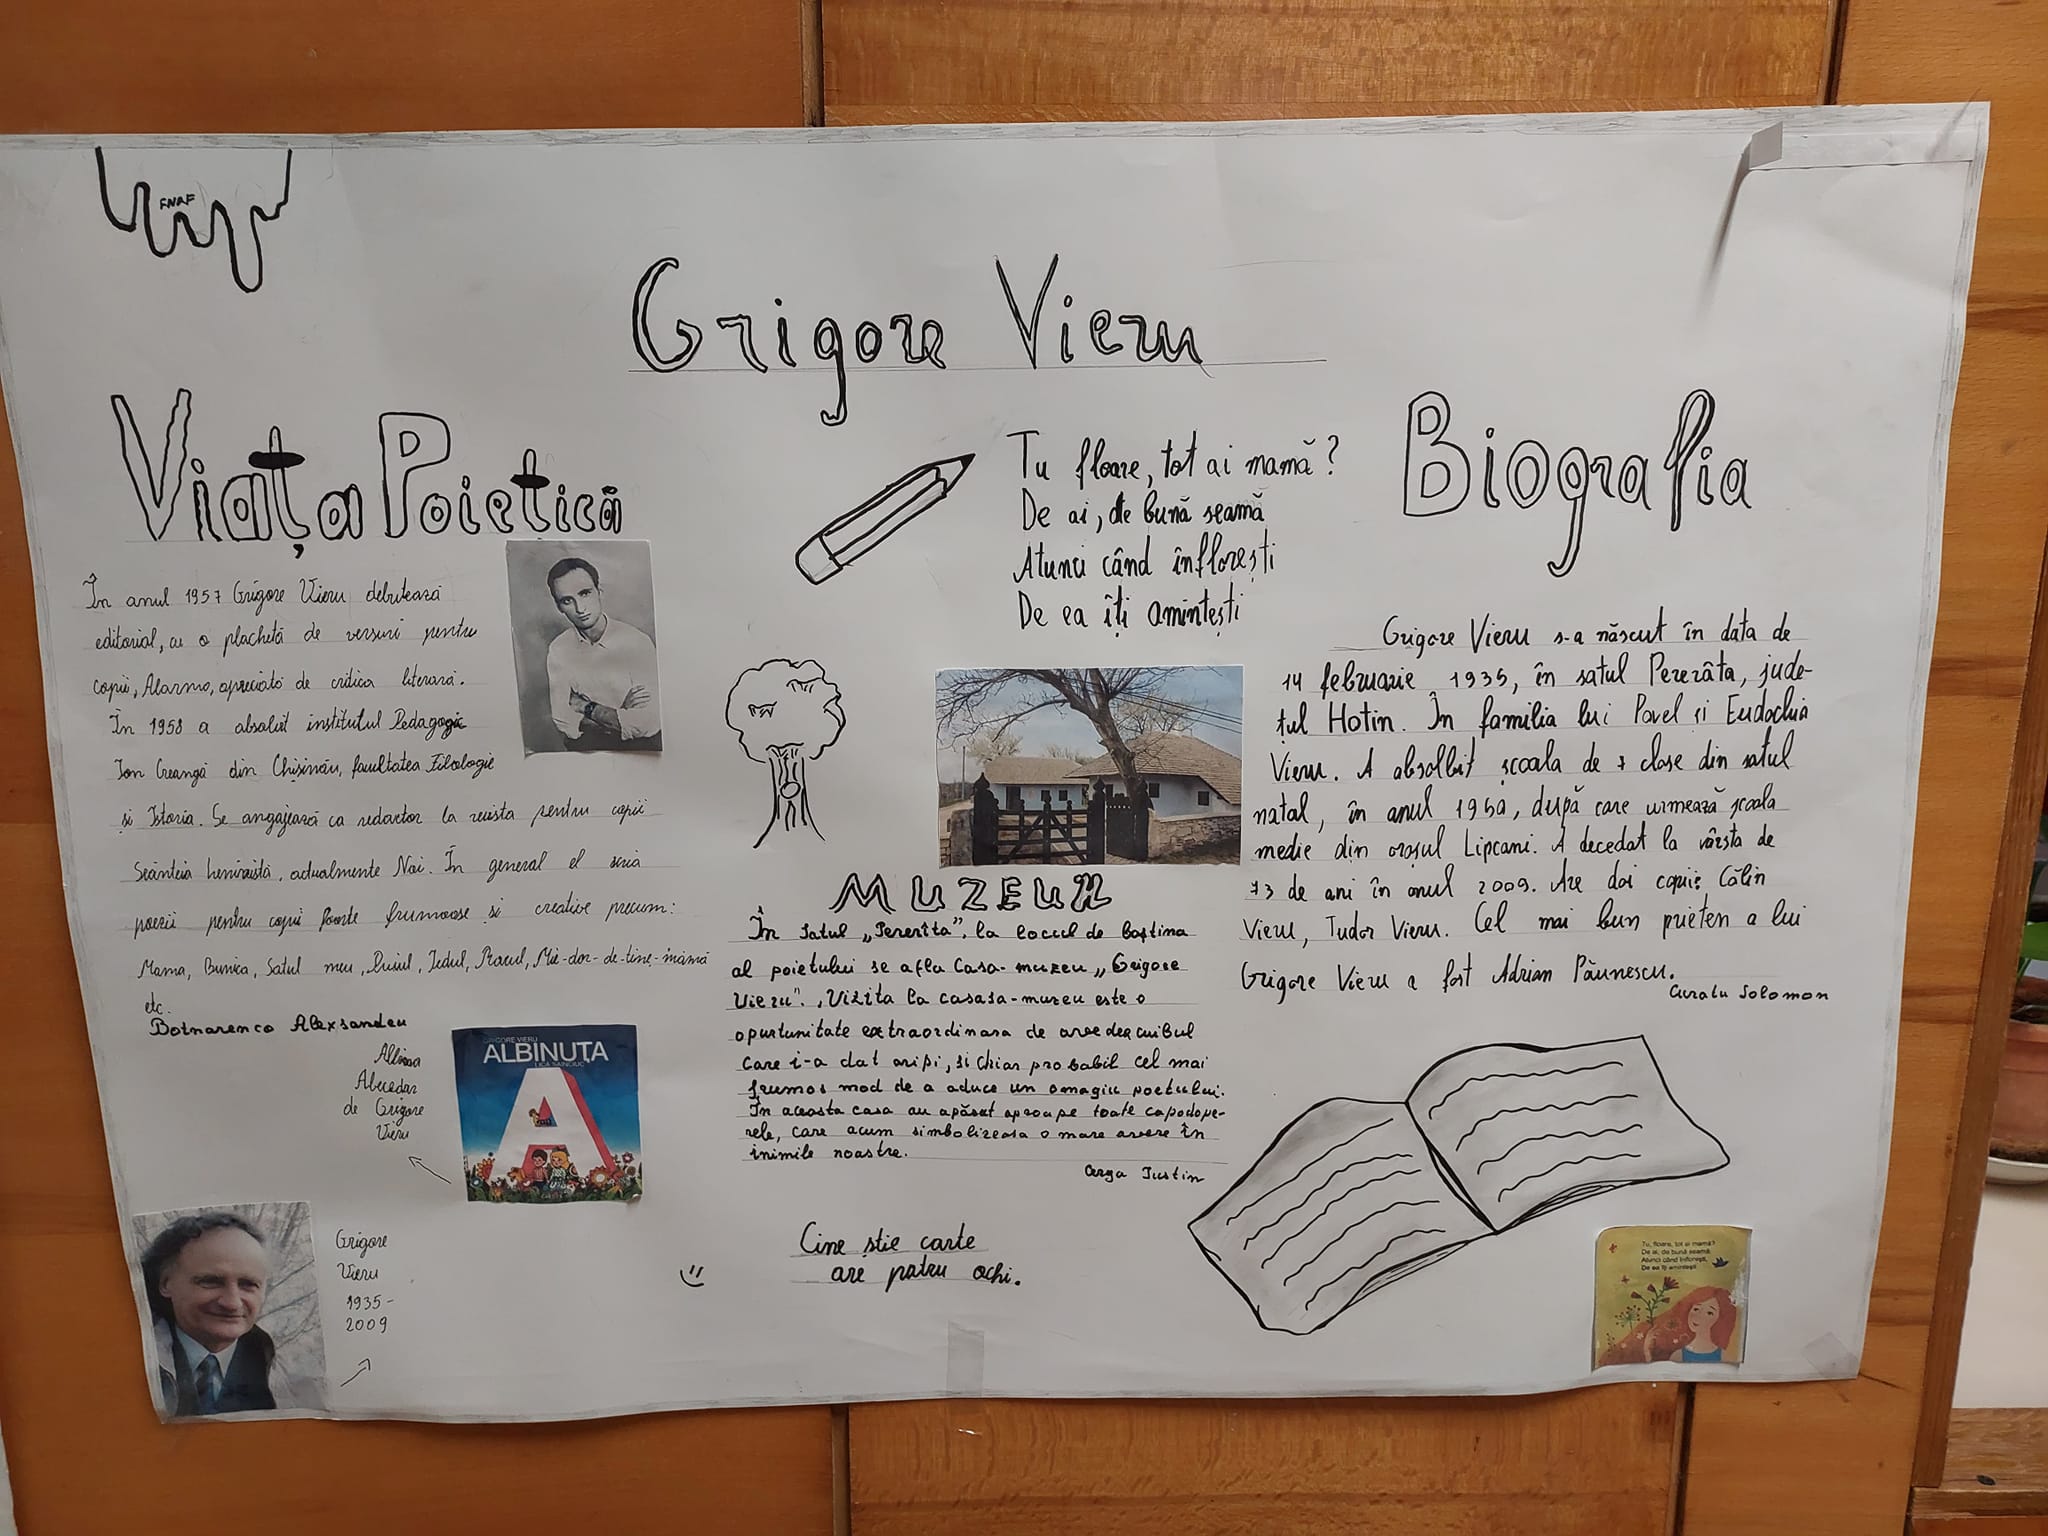 FNAF
Grigore Vieru
Viața Poietică
În anul 1957 Grigore Vieru debutează
editorial, cu o plachetă de versuri pentru
copii, Alarma, apreciată de critica literară.
În 1958 a absolvit institutul Pedagogic
Ion Creangă din Chișinău, facultatea Filologie
și Istoria. Se angajează ca redactor la revista pentru copii
Scânteia leninistă, actualmente Noi. În general el scria
poezii pentru copii foarte frumoase și creative precum:
Mama, Bunica, Satul meu, Puiul, Iedul, Racul, Mi-e-dor-de-tine-mămă
etc.
Botnarenco Alexsandru
Albina
Abecedar
de Grigore
Vieru
GRIGORE VIERU
ALBINUȚA
LICĂ SAINCIUC
A
Grigore
Vieru
1935-
2009
Tu floare, tot ai mamă?
De ai, de bună seamă
Atunci când înflorești
De ea îți amintești
MUZEUL
În Satul „Pererîta", la locul de baștina
al poietului se afla Casa-muzeu „Grigore
Vieru". Vizita la casasa-muzeu este o
oportunitate extraordinara de a vedea cuibul
care i-a dat aripi, si Chiar probabil cel mai
frumos mod de a aduce un omagiu poetului.
In aceasta casa au apăsat aproape toate capodope-
rele, care acum simbolizeasa o mare avere în
inimile noastre.
Iustin
Cine știe carte
are patru ochi.
Biografia
Grigore Vieru s-a născut în data de
14 februarie 1935, în satul Pererâta, jude-
țul Hotin. În familia lui Pavel și Eudochia
Vieru. A absolbit școala de 7 clase din satul
natal, în anul 1950, după care urmează școala
medie din orașul Lipcani. A decedat la vârsta de
73 de ani în anul 2009. Are doi copii: Călin
Vieru, Tudor Vieru. Cel mai bun prieten a lui
Grigore Vieru a fost Adrian Păunescu.
Solomon
Tu, floare, tot ai mamă?
De ai, de bună seamă.
Atunci când înflorești,
De ea îți amintești